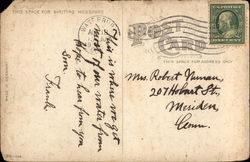 THIS SPACE FOR WRITING MESSAGES
POST CARD
THIS SPACE FOR ADDRESS ONLY
This is where we get
most of our water from
Hope to hear from you
Soon
Frank
Mrs. Robert
207 Hobart St.,
Meriden
Conn.